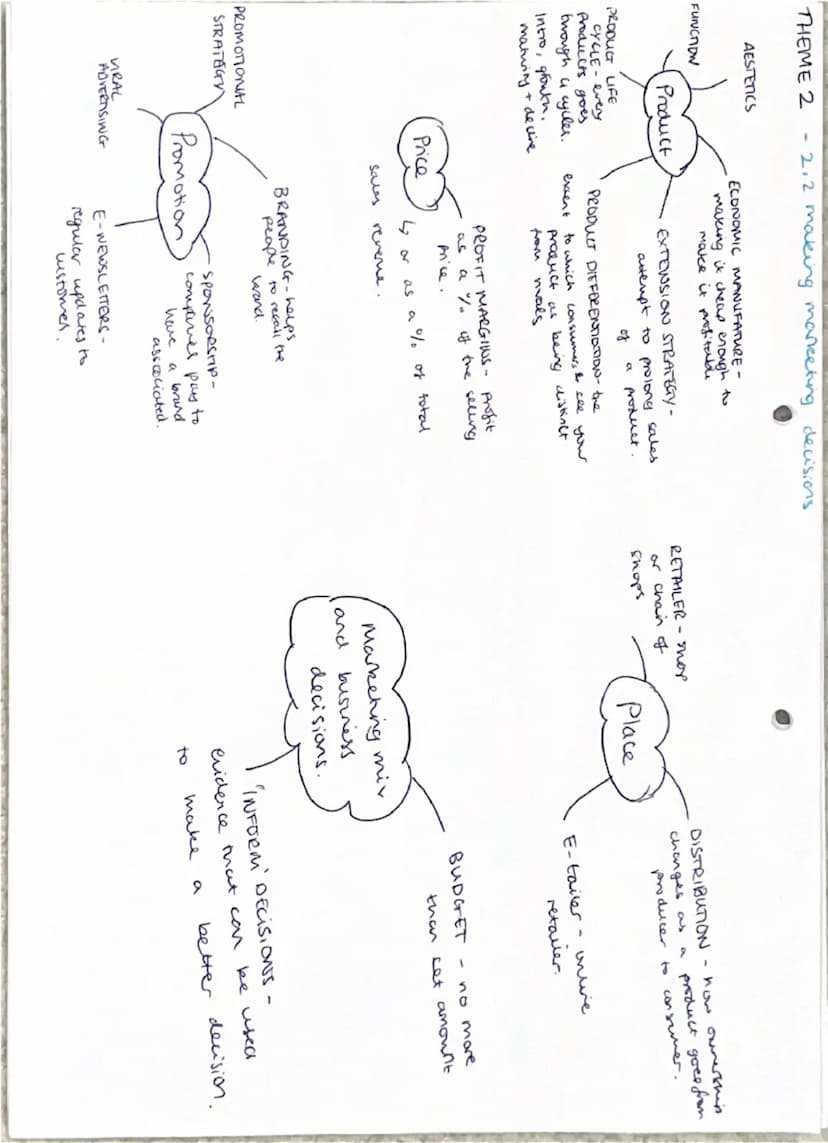 THEME 2 - 2.2 making marketing decisions
Product
FUNCTION
AESTETICS
ECONOMIC MANUFATURE -
making it cheap enough to
make it profitable
EXTENSION STRATEGY -
attempt to prolong sales
of a product.
PRODUCT DIFFERENTIATION - the
extent to which consumers see your
product as being distinct
from rivals
PRODUCT LIFE
CYCLE - every
products goes
through 4 cycles.
Intro, growth,
maturing + decline
Price
PROFIT MARGINS - profit
as a % of the selling
price.
↳ or as a % of total
sales revenue.
Promotion
PROMOTIONAL
STRATEGY
BRANDING - helps
people to recall the
brand.
SPONSORSHIP -
companies pay to
have a brand
associated.
E-NEWSLETTERS -
regular updates to
customers.
VIRAL
ADVERTISING
Place
RETAILER - shop
or chain of
shops
DISTRIBUTION - how ownership
changes as a product goes from
producer to consumer.
E-tailer - online
retailer.
Marketing mix
and business
decisions.
BUDGET - no more
than set amount
'INFORM' DECISIONS -
evidence that can be used
to make a better decision.